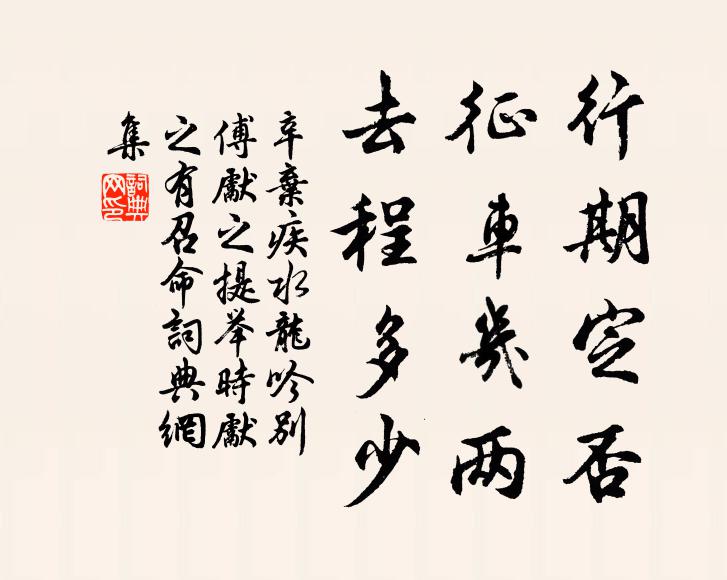 行期定否
征車幾两
去程多少
辛棄疾水龍吟别
傅獻之提举時獻
之有召命詞典網
集
詞典網印